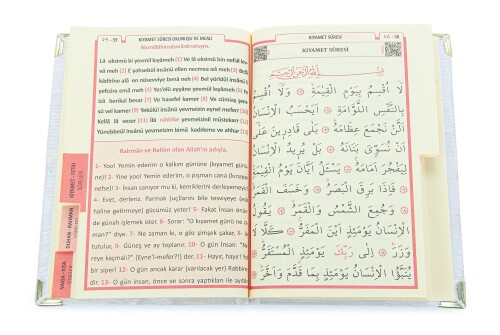 ٥٩ - 59
KIYAMET SÛRESİ OKUNUŞU VE MEÂLİ
Bismillâhirrahmânirrahıym.
Lâ uksimu bi yevmil kıyâmeh (1) Ve lâ uksimu bin nefsil lev-
vâ meh (2) E yahsebül insânü ellen necmea ızâ meh (3) Belâ
kâdirîne alâ en nüsevviye benâ neh (4) Bel yürîdül insânü li
yefcüra emâ meh (5) Yes'elü eyyâne yevmül kıyâmeh (6) Fe
izâ berikal besar (7) Ve hasefel kamer (8) Ve cümiaş şem-
sü vel kamer (9) Yekūlül insânü yevmeizin eynel mefer (10)
Kellâ lâ vezer (11) İlâ rabbike yevmeizinil müstekar (12)
Yünebbeül insânü yevmeizim bimâ kaddeme ve ahhar (13)
Rahmân ve Rahîm olan Allah'ın adıyla.
1- Yoo! Yemin ederim o kalkım gününe (kıyamet günü-
ne)! 2- Yine yoo! Yemin ederim, o pişman cana (kınayan
nefse)! 3- İnsan sanıyor mu ki, kemiklerini derleyemeyiz?
4- Evet, derleriz. Parmak (uç)larını bile tesviyeye (eski
haline getirmeye) gücümüz yeter! 5- Fakat İnsan önün-
de günah işlemek ister. 6- Sorar: "O kıyamet günü ne za-
man?" diye. 7- Ne zaman ki, o göz şimşek çakar, 8- Ay
tutulur, 9- Güneş ve ay toplanır. 10- O gün İnsan: "Ne-
reye kaçmalı? (Eyne'l-mefer?!) der. 11- Hayır, hayır! Yok
bir siper! 12- O gün ancak karar (varılacak yer) Rabbine-
dir. 13- O gün insan, önce ve sonra yaptıkları ile ayıdır
KIYAMET - FETİH
DUHAN - RAHMAN
VAKIA - KISA
KIYAMET SÛRESİ
٥٨ - 58
KIYAMET SÛRESİ
بِسْمِ اللّٰهِ الرَّحْمٰنِ الرَّحِيمِ
لَٓا اُقْسِمُ بِيَوْمِ الْقِيٰمَةِ ۝ وَلَٓا اُقْسِمُ
بِالنَّفْسِ اللَّوَّامَةِ ۝ اَيَحْسَبُ الْاِنْسَانُ
اَلَّنْ نَجْمَعَ عِظَامَهُ ۝ بَلٰى قَادِرِينَ عَلٰٓى
اَنْ نُسَوِّيَ بَنَانَهُ ۝ بَلْ يُرِيدُ الْاِنْسَانُ
لِيَفْجُرَ اَمَامَهُ ۝ يَسْـَٔلُ اَيَّانَ يَوْمُ الْقِيٰمَةِ
۝ فَاِذَا بَرِقَ الْبَصَرُ ۝ وَخَسَفَ الْقَمَرُ
۝ وَجُمِعَ الشَّمْسُ وَالْقَمَرُ ۝ يَقُولُ
الْاِنْسَانُ يَوْمَئِذٍ اَيْنَ الْمَفَرُّ ۝ كَلَّا لَا
وَزَرَ ۝ اِلٰى رَبِّكَ يَوْمَئِذٍ الْمُسْتَقَرُّ ۝
يُنَبَّؤُا الْاِنْسَانُ يَوْمَئِذٍ بِمَا قَدَّمَ وَاَخَّرَ ۝